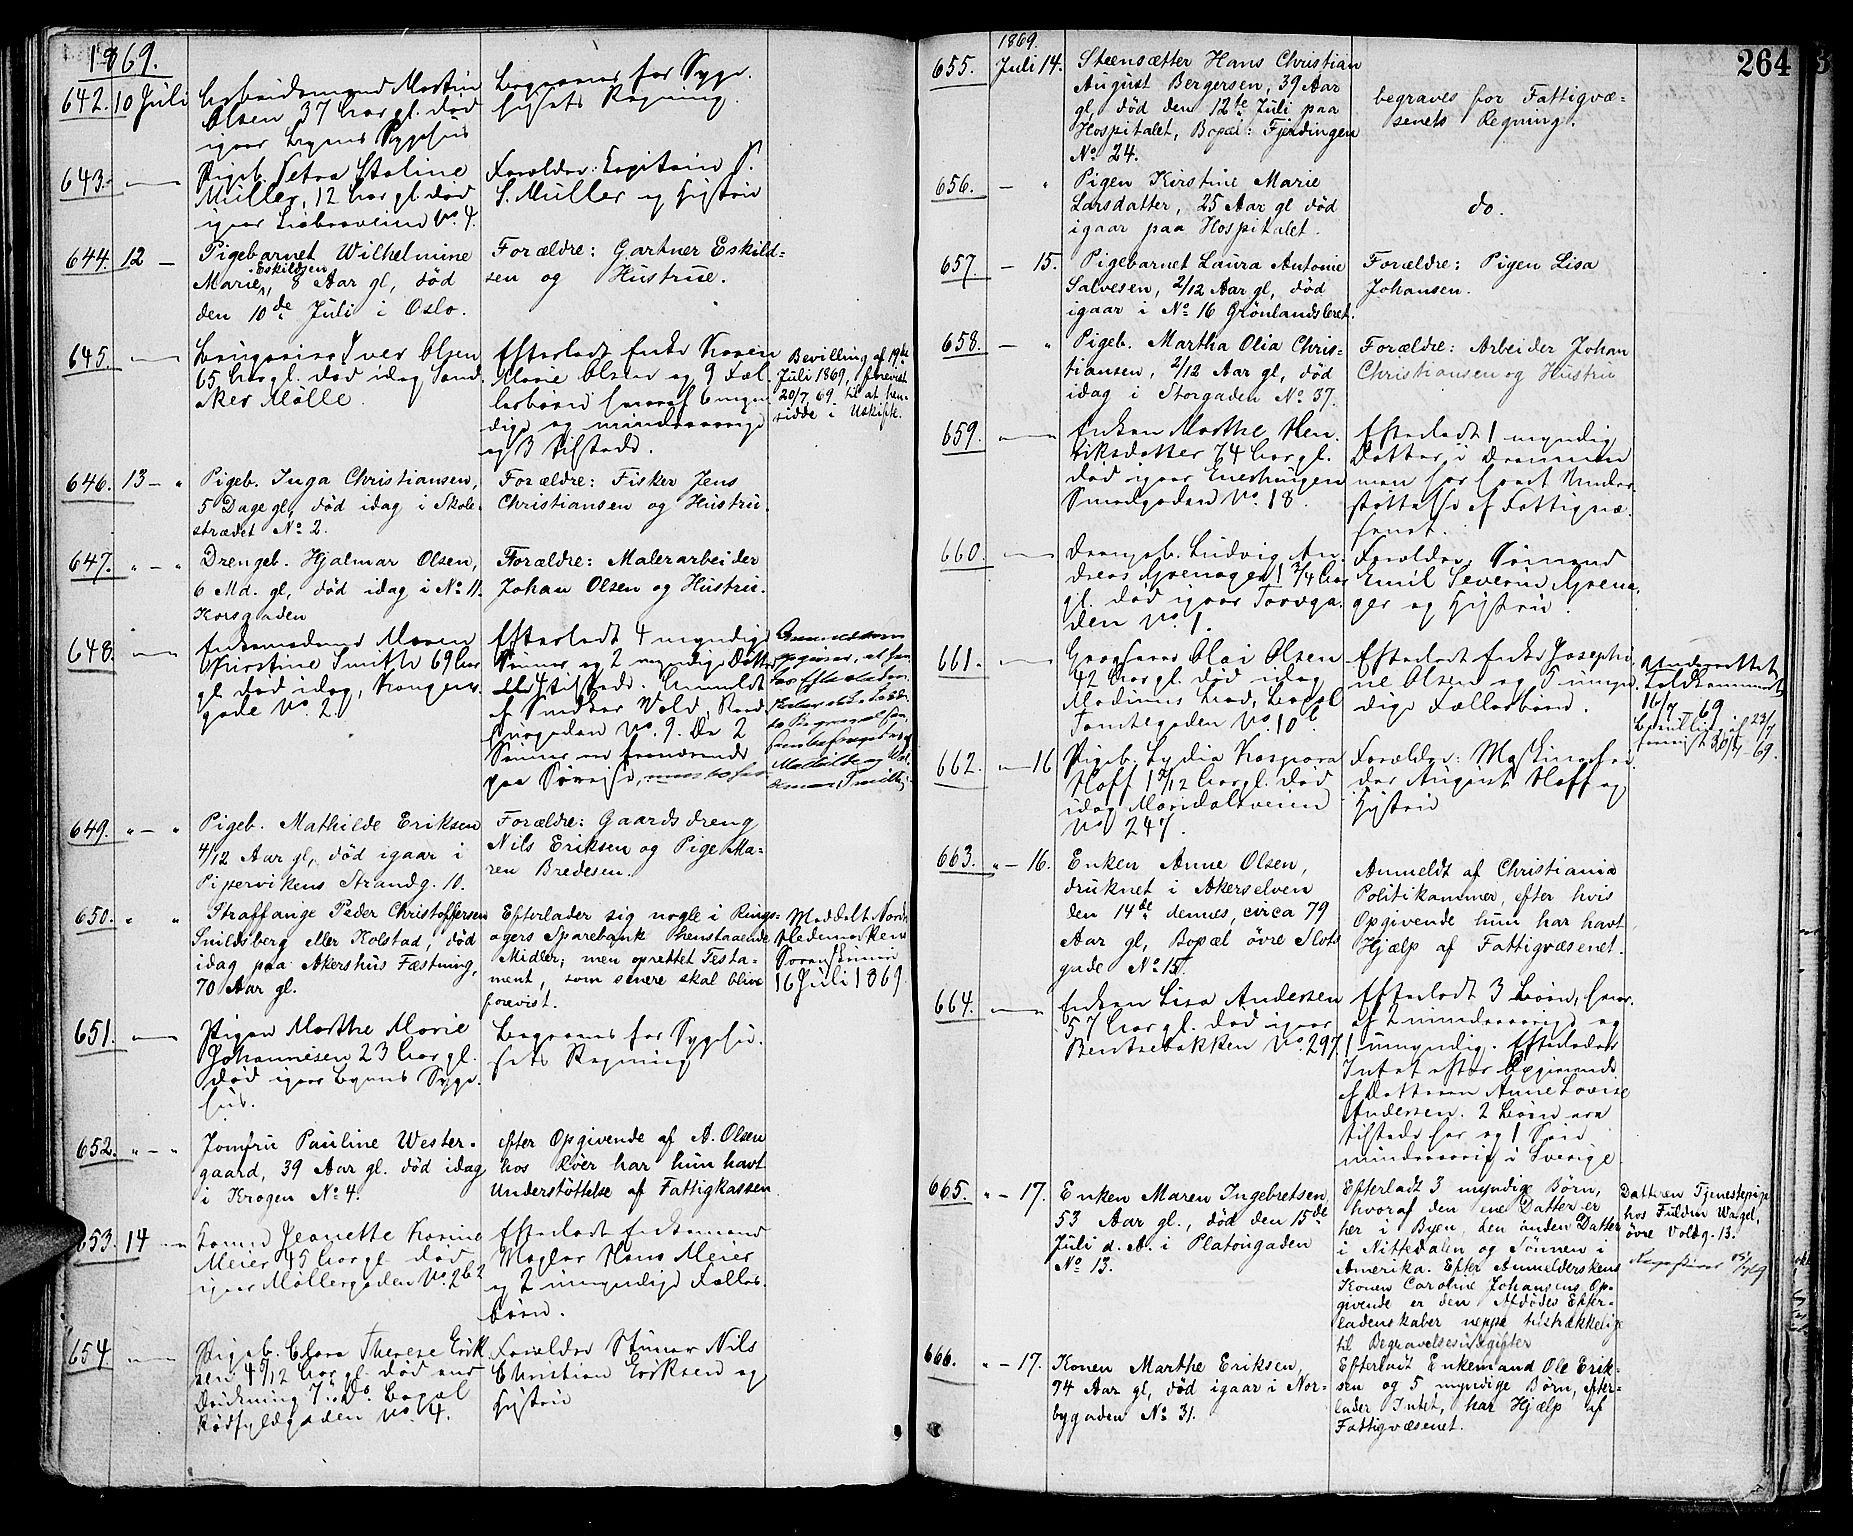 1869.
642. 10 Juli
Arbeidsmand Martin
Olsen 37 Aar gl. død
igaar Byens Sygehus
Begraves for Syge-
husets Regning.
643.
Pigeb. Petra Staline
Müller, 12 Aar gl. død
igaar No. 4.
Forældre: Kapitain P.
S. Müller og Hustru
644. 12 —
Pigebarnet Wilhelmine
Marie Eskildsen, 8 Aar gl, død
den 10de Juli i Oslo.
Forældre: Gartner Eskild-
sen og Hustrue.
645.
Iver Olsen
65 Aar gl. død idag Sand-
aker Mølle.
Efterladt Enke Karen
Marie Olsen og 9 Fæl-
lesbørn hvoraf 6 myn-
dige og mindreaarige
og 3 tilstede.
Bevilling af 19de
Juli 1869, forevist
20/7 69 til at hen-
sidde i Uskifte.
646. 13 — "
Pigeb. Inga Christiansen,
5 Dage gl, død idag i Skole-
strædet No. 2.
Forældre: Fisker Jens
Christiansen og Hustru.
647. " — "
Drengeb. Hjalmar Olsen,
6 Md. gl, død idag i No. 11.
Korsgaden
Forældre: Malerarbeider
Johan Olsen og Hustru.
648.
Enkemadame Maren
Kirstine Smith 69 Aar
gl død idag, Kongens-
gade No. 2.
Efterladt 4 myndige
Sønner og 2 myndige Døtre
alle tilstede. Anmeldt
af Snedker Vold,
No. 9. De 2
Sønner er fraværende
paa Søreise,
opgiver, at
649. " — "
Pigeb. Mathilde Eriksen
4/12 Aar gl, død igaar i
Pipervikens Strandg. 10.
Forældre: Gaardsdreng
Nils Eriksen og Pige Ma-
ren Bredesen.
650. " "
Straffange Peder Christoffersen
Snildsberg eller Kolstad, død
idag paa Akershus Fæstning,
70 Aar gl.
Efterlader sig nogle i Rings-
agers Sparebank henstaaende
Midler; men oprettet Testa-
ment, som senere skal blive
forevist.
Meddelt Nordr
Hedemarkens
Sorenskriver
16 Juli 1869
651.
Pigen Marthe Marie
Johannesen 23 Aar gl.
død igaar Byens Syge-
hus.
Begraves for Sygehu-
sets Regning
652. " — "
Jomfru Pauline Wester-
gaard, 39 Aar gl. død idag
i Krogen No. 4.
efter Opgivende af A. Olsen
hos Röer har hun havt
Understöttelse af Fattigkassen
653. 14
Konen Jeanette Karine
Meier 45 Aar gl. død
igaar Møllergaden No. 26
Efterladt Enkemand
Mægler Hans Meier
og 2 umyndige Fælles-
børn.
654
Pigeb. Clara Therese Erik-
sen 4 9/12 Aar gl. død ved
Drukning 7. ds. Bopæl
Rødfyldgaden No. 4.
Forældre Stuver Nils
Christian Eriksen og
Hustru
264
1869.
655. Juli 14.
Steensætter Hans Christian
August Bergersen, 39 Aar
gl, død den 12te Juli paa
Hospitalet, Bopæl: Fjerdingen
No. 24.
begraves for Fattigvæ-
senets Regning.
656. — "
Pigen Kirstine Marie
Larsdatter, 25 Aar gl død
igaar paa Hospitalet.
do.
657. — 15.
Pigebarnet Laura Antonie
Salvesen, 2/12 Aar gl, død
igaar i No. 16 Grönlandsleret.
Forældre: Pigen Lisa
Johansen.
658. — "
Pigeb. Martha Olia Chris-
tiansen, 2/12 Aar gl, død
idag i Storgaden No. 37.
Forældre: Arbeider Johan
Christiansen og Hustru
659.
Enken Marthe Hen-
riksdatter 74 Aar gl.
død igaar Enerhaugen
Smedgaden No. 18.
Efterladt 1 myndig
Datter i Drammen
men har havt Under-
støttelse af Fattigvæ-
senet.
660.
Drengeb. Ludvig An-
dreas Grenager 1 3/4 Aar
gl. død igaar Torvga-
den No. 1.
Forældre Sømand
Emil Severin Grena-
ger og Hustru.
661.
Olai Olsen
42 Aar gl. død idag
Bopæl
Tomtegaden No. 10 b
Efterladt Enke Josephi-
ne Olsen og 5 umyn-
dige Fællesbørn.
Underrettet
Toldkammeret
16/7 69
Bevilling af 23/7
forevist 69.
662. — 16
Pigeb. Lydia Kaspara
Hoff 1 2/12 Aar gl. død
idag Maridalsveien
No. 247.
Forældre: Maskinarbei-
der August Hoff og
Hustru
663. " — 16.
Enken Anne Olsen,
druknet i Akerselven
den 14de dennes, circa 79
Aar gl, Bopæl övre Slots
gade No. 15.
Anmeldt af Christiania
Politikammer, efter hvis
Opgivende hun har havt
Hjælp af Fattigvæsenet.
664.
Enken Lisa Andersen
57 Aar gl. død igaar
Bentsebakken No. 297.
Efterladt 3 Børn, hvor-
af 2 mindreaarige og
1 umyndig. Efterlader
Intet efter Opgivende
af Datteren Anne Lovise
Andersen. 2 Børn ere
tilstede her og 1 Søn
mindreaarig i Sverige
665. " — 17.
Enken Maren Ingebretsen,
53 Aar gl., død den 15de
Juli d. A. i Platougaden
No. 13.
Efterladt 3 myndige Børn,
hvoraf den ene Datter er
her i Byen, den anden Datter
i Nittedalen og Sönnen i
Amerika. Efter Anmelderskens
Konen Caroline Johansens Op-
givende er den Afdødes Efter-
ladenskaber neppe tilstrækkelige
til Begravelsesudgifter
Datteren Tjenestepige
hos Fuldm Wagel,
övre Voldg. 13.
666. " — 17.
Konen Marthe Eriksen,
74 Aar gl, død igaar i Nor-
bygaden No. 31.
Efterladt Enkemand Ole Erik-
sen og 5 myndige Børn, efter-
lader Intet, har Hjælp af
Fattigvæsenet.